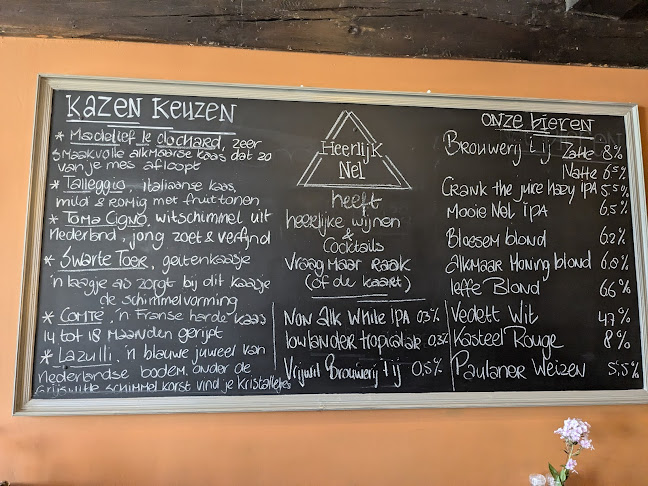 Kazen Keuzen
* Madelief le clochard, zeer
smaakvolle alkmaarse kaas dat zo
van je mes afloopt
* Talleggio italiaanse kaas,
mild & romig met fruittonen
* Toma Cigno, witschimmel uit
nederland, jong zoet & verfijnd
* Swarte Toer, geitenkaasje
'n laagje as zorgt bij dit kaasje
de schimmelvorming
* Comté, 'n Franse harde kaas
14 tot 18 maanden gerijpt
* Lazulli, 'n blauwe juweel van
nederlandse bodem. onder de
grijswitte schimmel korst vind je kristalletjes
Heerlijk
Nel
heeft
heerlijke wijnen
&
Cocktails
vraag maar raak
(of de kaart)
Non alk White IPA 0,3%
lowlander tropical 0,3%
Vrijwit Brouwerij t ij 0,5%
onze bieren
Brouwerij t ij Zatte 8%
Natte 6,5%
Crank the juice hazy IPA 5,5%
Mooie Nel IPA 6,5%
Bloesem blond 6,2%
alkmaar Honing blond 6,0%
leffe Blond 6,6%
Vedett Wit 4,7%
Kasteel Rouge 8%
Paulaner Weizen 5,5%